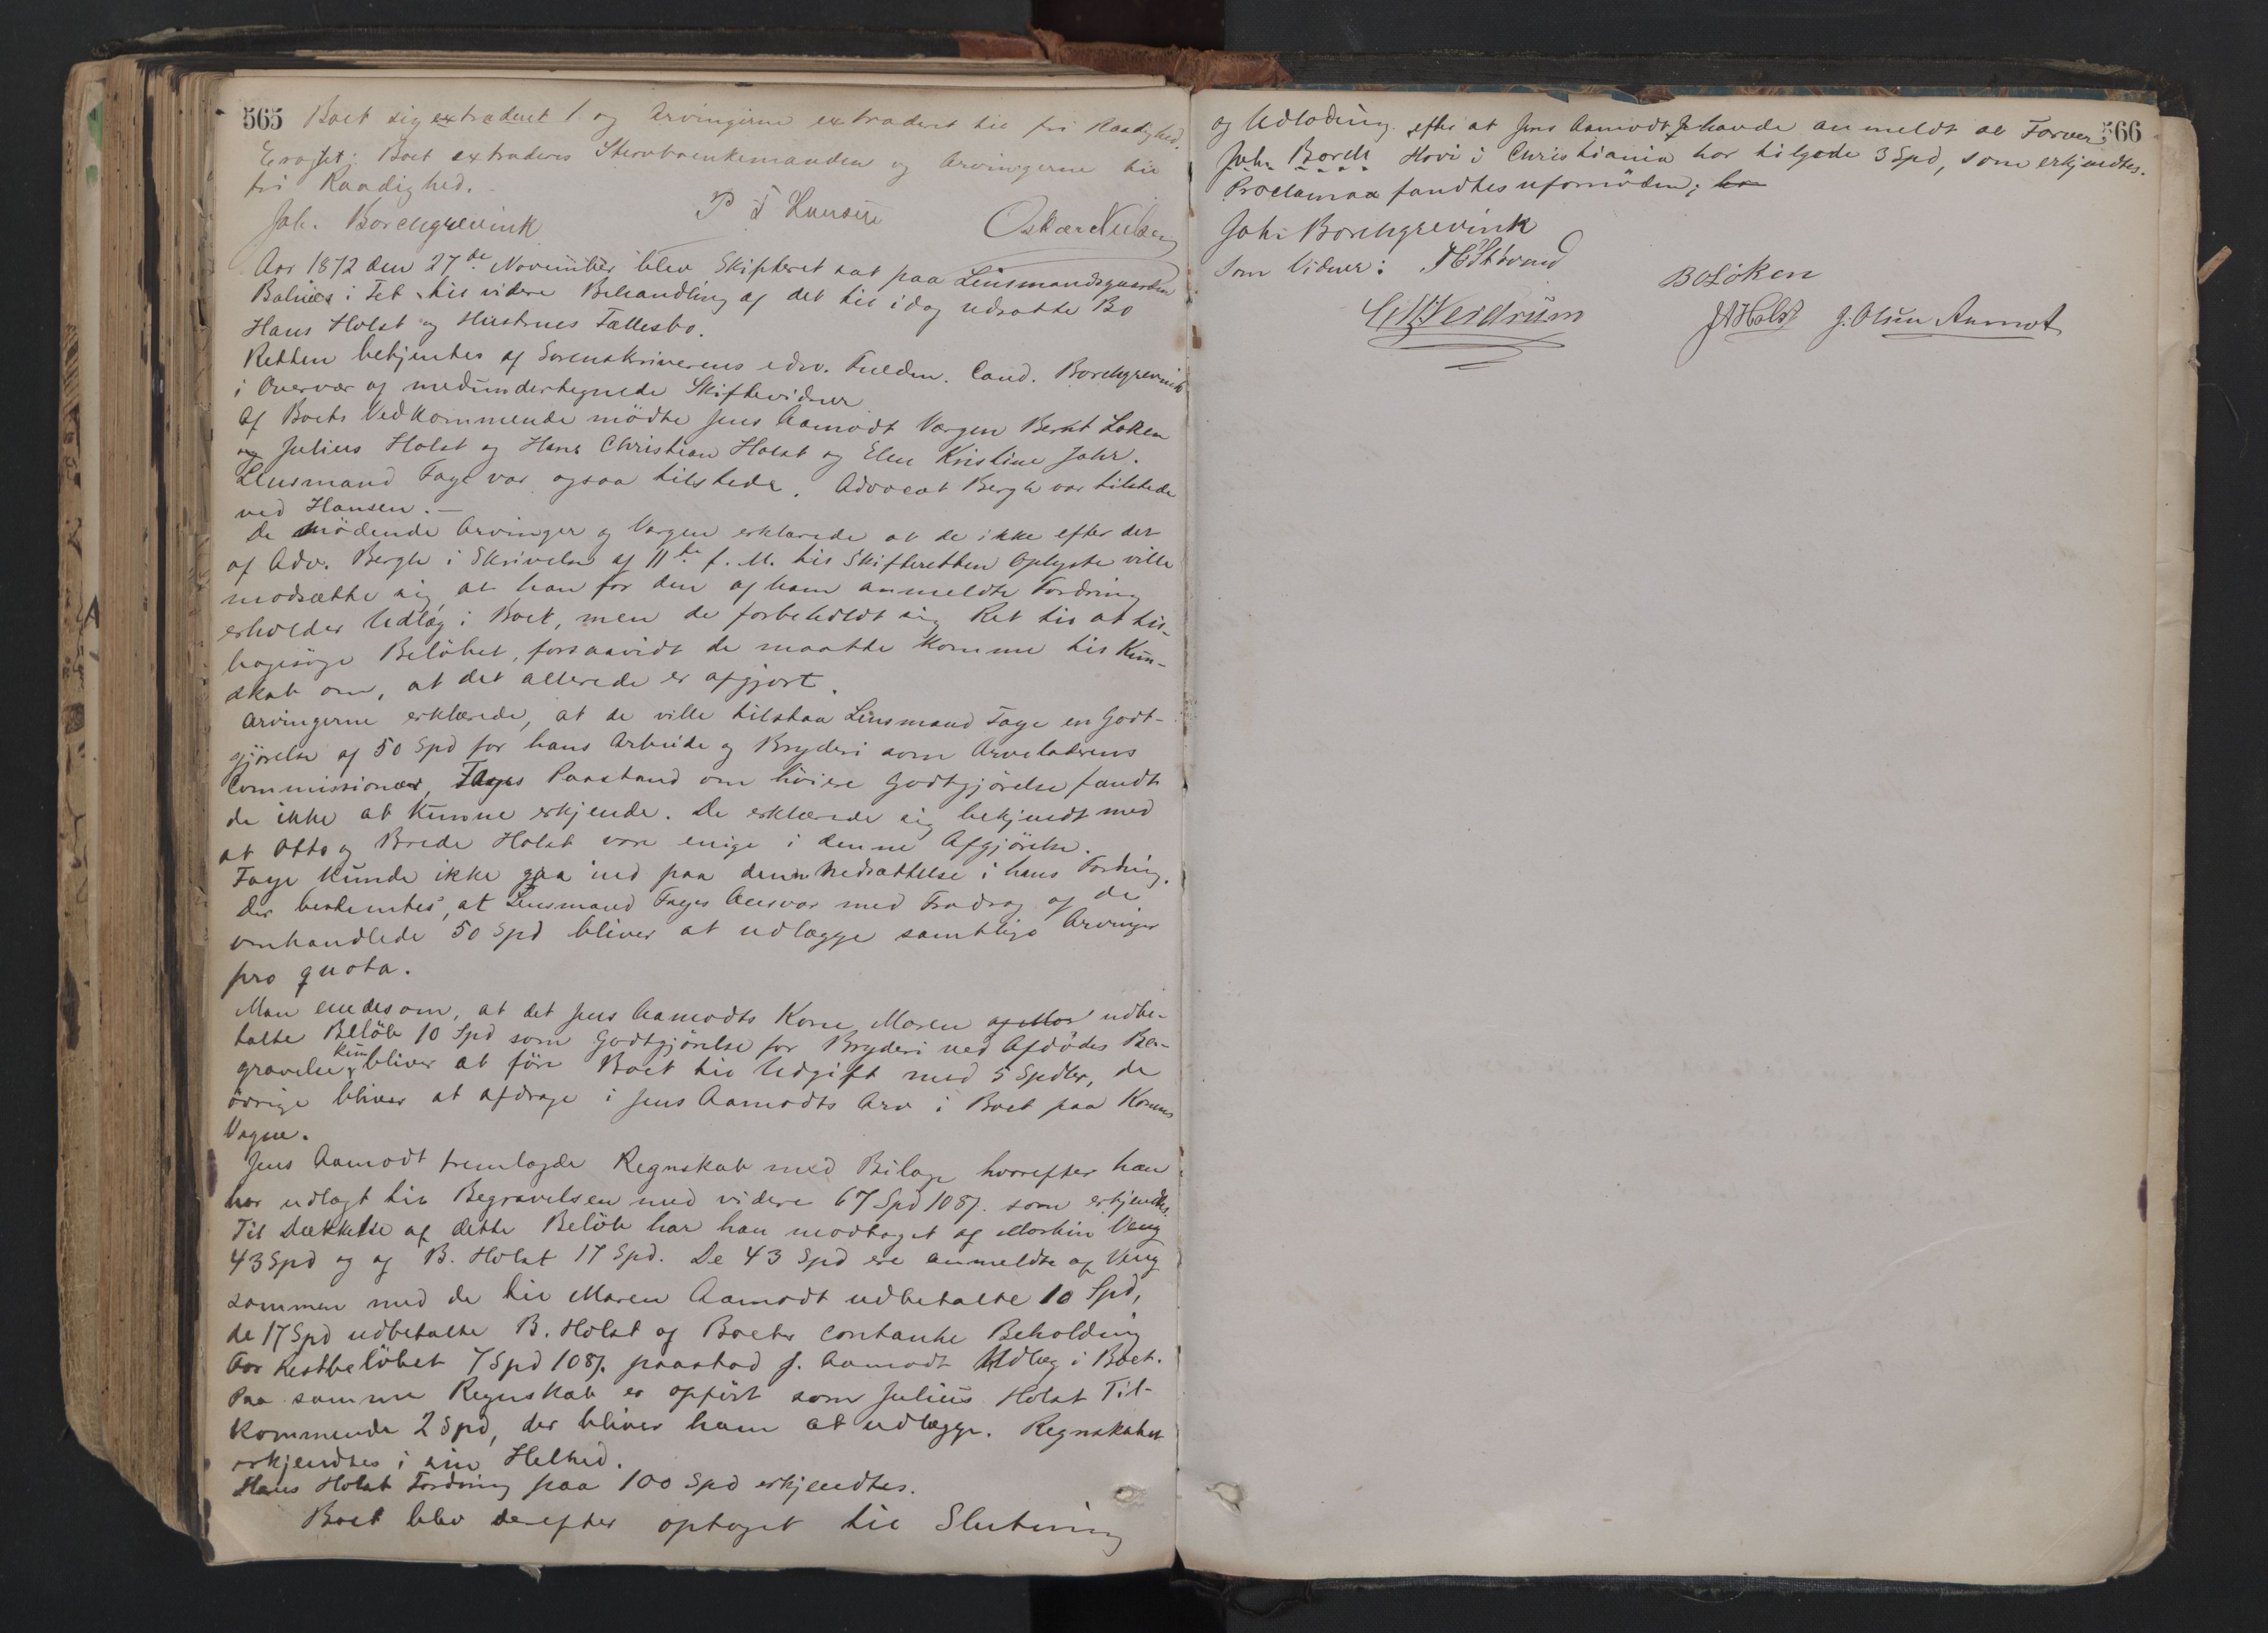 565 Boet sig extraderet / og Arvingerne extraderet til fri Raadighed.
Eragtet: Boet extraderes Stervboenkemanden og Arvingerne til
fri Raadighed.
Joh. Borchgrevink P T Hansen Oskar Nielsen
Aar 1872 den 27de November blev Skifteret sat paa Lensmandsgaarden
Balnes i Fet til videre Behandling af det til idag udsatte Bo
Hans Holst og Hustrues Fællesbo.
Retten betjentes af Sorenskriverens edsv. Fuldm. Cand. Borchgrevink
i Overvær af medundertegnede Skiftevidner
Af Boets Vedkommende mödte Jens Aamodt Værgen Bernt Löken
og Julius Holst og Hans Christian Holst og Elen Kristine Jahr.
Lensmand Faye var ogsaa tilstede. Advocat Bergh var tilstede
ved Hansen. —
De mödende Arvinger og Værgen erklærede at de ikke efter det
af Adv. Bergh i Skrivelse af 11te f. M. til Skifteretten Oplyste ville
modsætte sig, at han for den af ham anmeldte Fordring
erholder Udlæg i Boet, men de forbeholdt sig Ret til at til-
bagesöge Belöbet, forsaavidt de maatte komme til Kun-
skab om, at det allerede er afgjort.
Arvingerne erklærede, at de ville tilstaa Lensmand Faye en Godt-
gjörelse af 50 Spd for hans Arbeide og Bryderi som Arveladerens
Commissionær, Fayes Paastand om höiere Godtgjörelse fandt
de ikke at kunne erkjende. De erklærede sig bekjendt med
at Otto og Brede Holst vare enige i denne Afgjörelse.
Faye kunde ikke gaa ind paa denne Nedsættelse i hans Fordring.
Der bestemtes, at Lensmand Fayes Ansvar med Fradrag af de
omhandlede 50 Spd bliver at udlægge samtlige Arvinger
pro quota.
Man enedes om, at det Jens Aamodts Kone Maren af Mor udbe-
talte Belöb 10 Spd som Godtgjörelse for Bryderi ved Afdödes Be-
gravelse kun bliver at före Boet til Udgift med 5 Spdlr, de
övrige bliver at afdrage i Jens Aamodts Arv i Boet paa Konens
Vegne.
Jens Aamodt fremlagde Regnskab med Bilage hvorefter han
har udlagt til Begravelsen med videre 67 Spd 108 s. som erkjendtes.
Til Dækkelse af dette Belöb har han modtaget af Martin Veng
43 Spd og af B. Holst 17 Spd. De 43 Spd ere anmeldte af Veng
sammen med de til Maren Aamodt udbetalte 10 Spd,
de 17 Spd udbetalte B. Holst af Boets contante Beholdning
For Restbelöbet 7 Spd 108 s. paastod J. Aamodt Udlæg i Boet.
Paa samme Regnskab er opfört som Julius Holst Til-
kommende 2 Spd, der bliver ham at udlægge. Regnskabet
erkjendtes i sin Helhed.
Hans Holst Fordring paa 100 Spd erkjendtes.
Boet blev derefter optaget til Slutning
566
og Udlodning efter at Jens Aamodt havde anmeldt at Farver
Joh. Borch Hovi i Christiania har tilgode 3 Spd, som erkjendtes.
Proclama fandtes ufornöden; ha
Joh. Borchgrevink
Som Vidner:
B O Löken
J A Holst J. Olsen Aamot